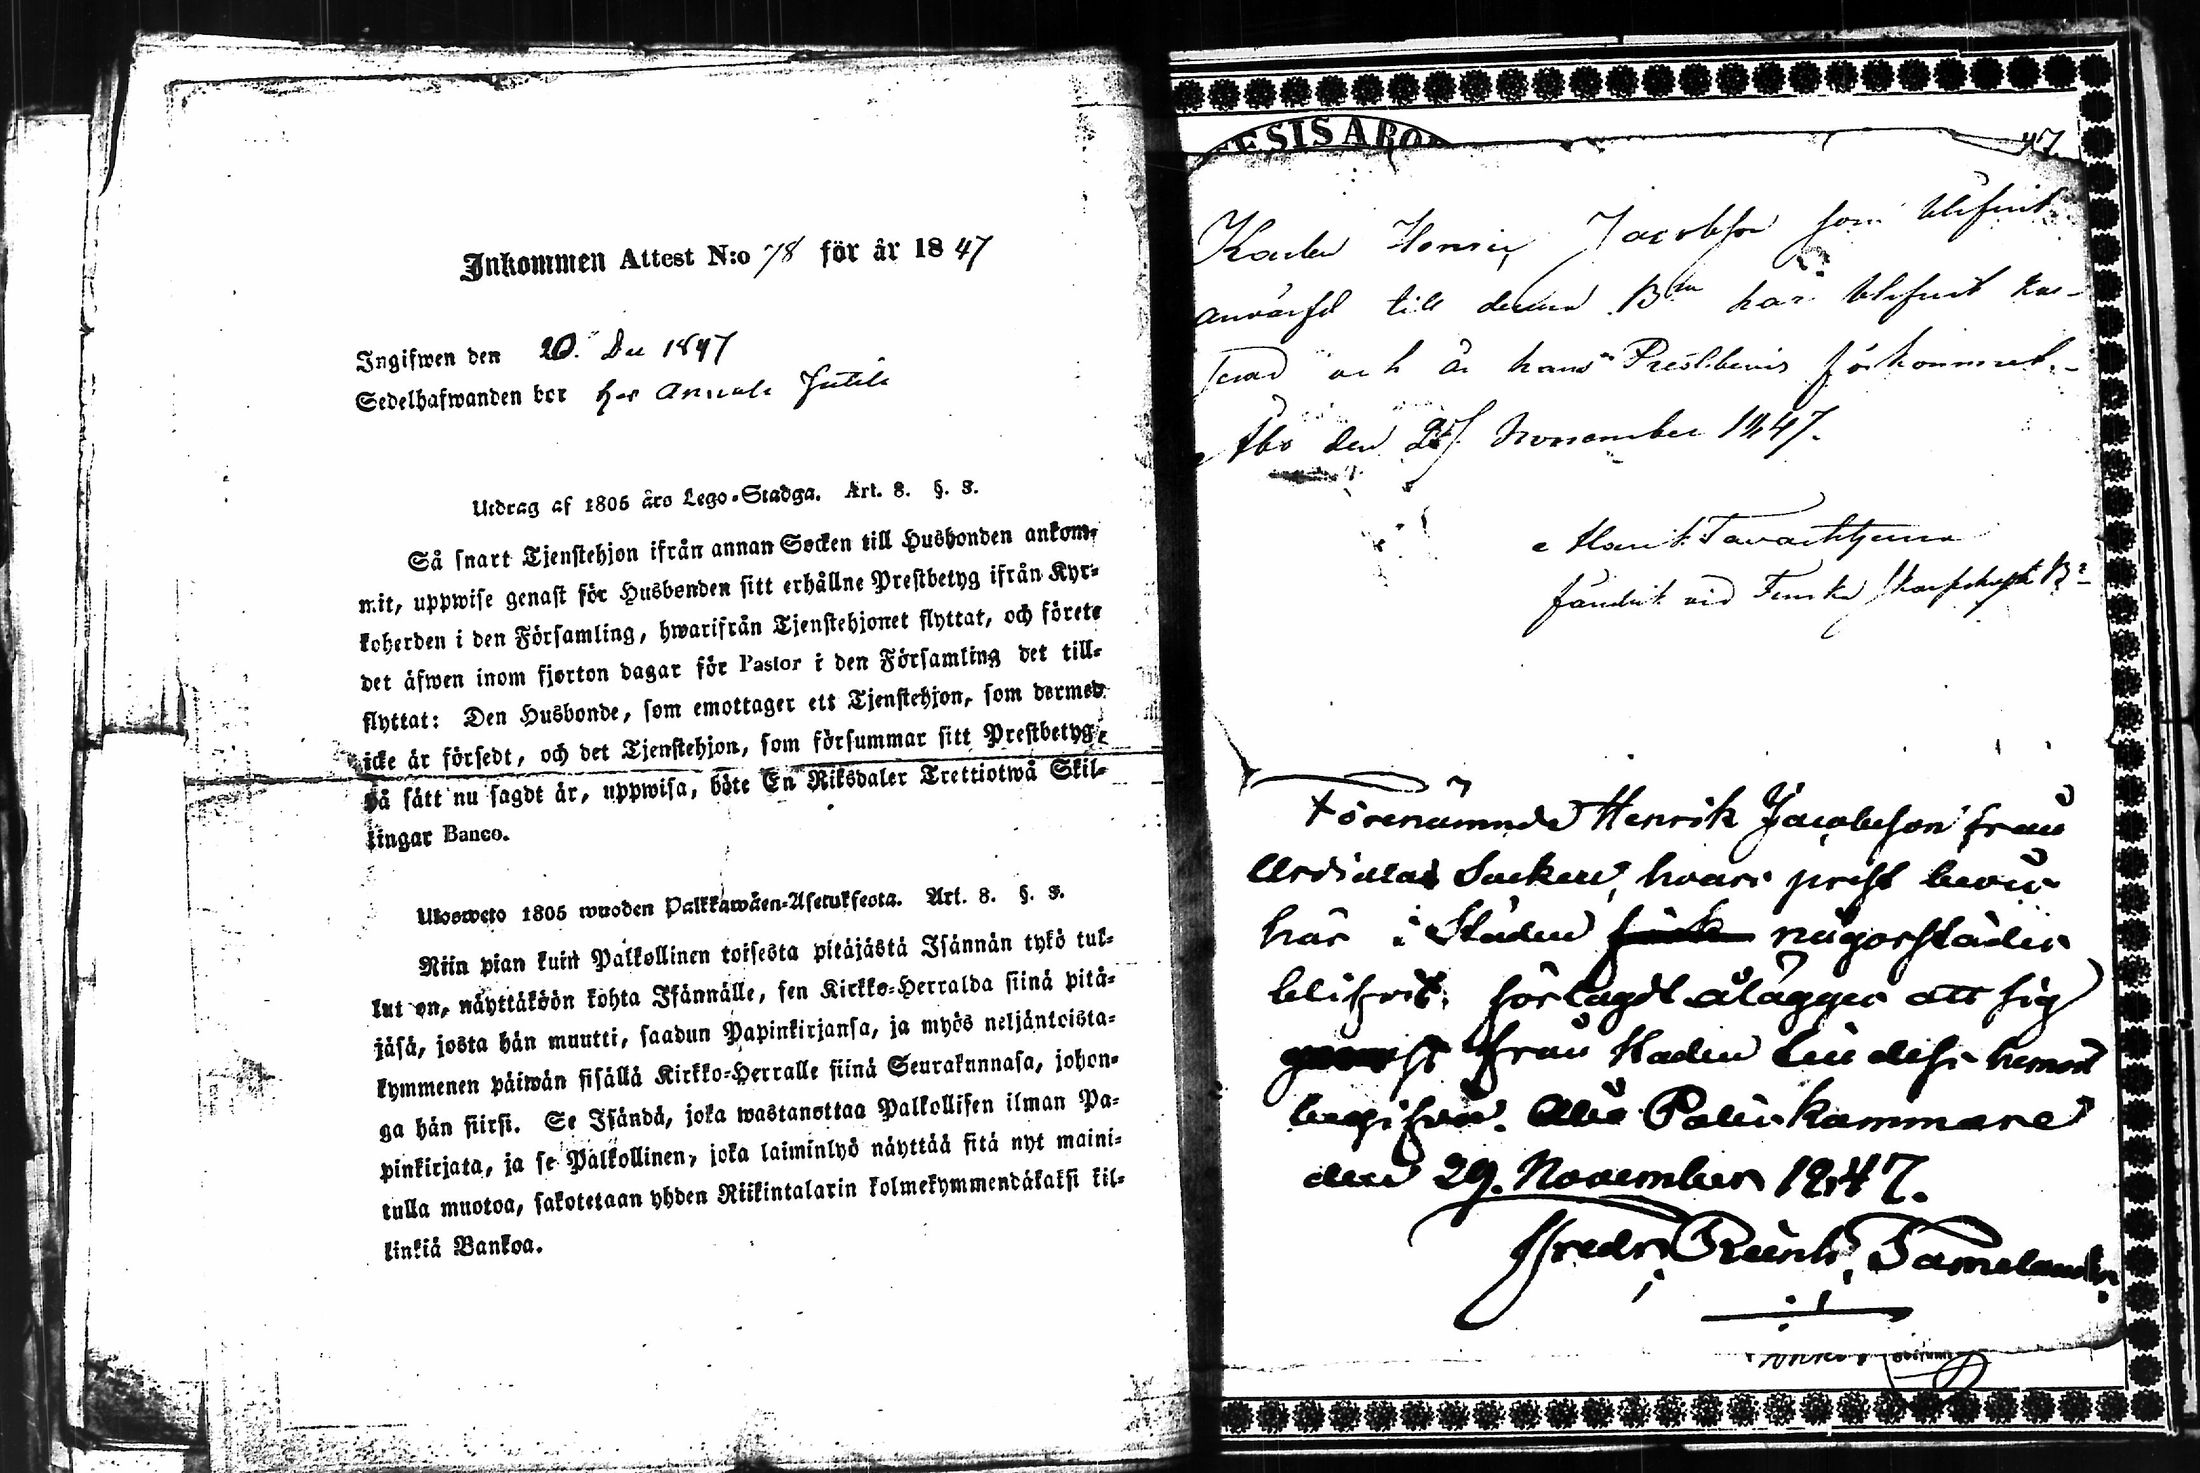 Inkommen Attest N:o 78 för år 1847
Ingifwen den 20. Dec 1847
Sedelhafwanden bor hos
Utdrag af 1805 års Lego-Stadga. Art. 8. §. 3.
Så snart Tjenstehjon ifrån annan Socken till Husbonden ankom-
mit, uppwise genast för Husbonden sitt erhållne Prestbetyg ifrån Kyr-
koherden i den Församling, hwarifrån Tjenstehjonet flyttat, och förete
det äfwen inom fjorton dagar för Pastor i den Församling det till-
flyttat: Den Husbonde, som emottager ett Tjenstehjon, som dermed
icke är försedt, och det Tjenstehjon, som försummar sitt Prestbetyg,
på sätt nu sagdt är, uppwisa, böte En Riksdaler Trettiotwå Skil-
lingar Banco.
Ulosweto 1805 wuoden Palkkawäen-Asetuksesta. Art. 8. §. 3.
Niin pian kuin Palkollinen toisesta pitäjästä Isännän tykö tul-
lut on, näyttäköön kohta Isännälle, sen Kirkko-Herralda siinä pitä-
jäsä, josta hän muutti, saadun Papinkirjansa, ja myös neljäntoista-
kymmenen päiwän sisällä Kirkko-Herralle siinä Seurakunnasa, johon-
ga hän siirsi. Se Isändä, joka wastanottaa Palkollisen ilman Pa-
pinkirjata, ja se Palkollinen, joka laiminlyö näyttää sitä nyt maini-
tulla muotoa, sakotetaan yhden Riikintalarin kolmekymmendäkaksi kil-
linkiä Bankoa.
47.
Karlen Henric Jacobson som blifvit
anvärfd till denna Bn har blifvit kas-
serad och är hans Prestbevis förkommet.
Åbo den 27 November 1847.
Tavaststjerna
fändrik vid Finska Skarpskytt Bn
Förenämnde Henrik Jacobsson från
Socken, hvars prest bevis
här i Staden någorstädes
blifvit förlagdt ålägges att sig
från staden till dess hemort
begifva. Åbo Poliskammare
den 29. November 1847.
Fredr. Reinh. Tamelander